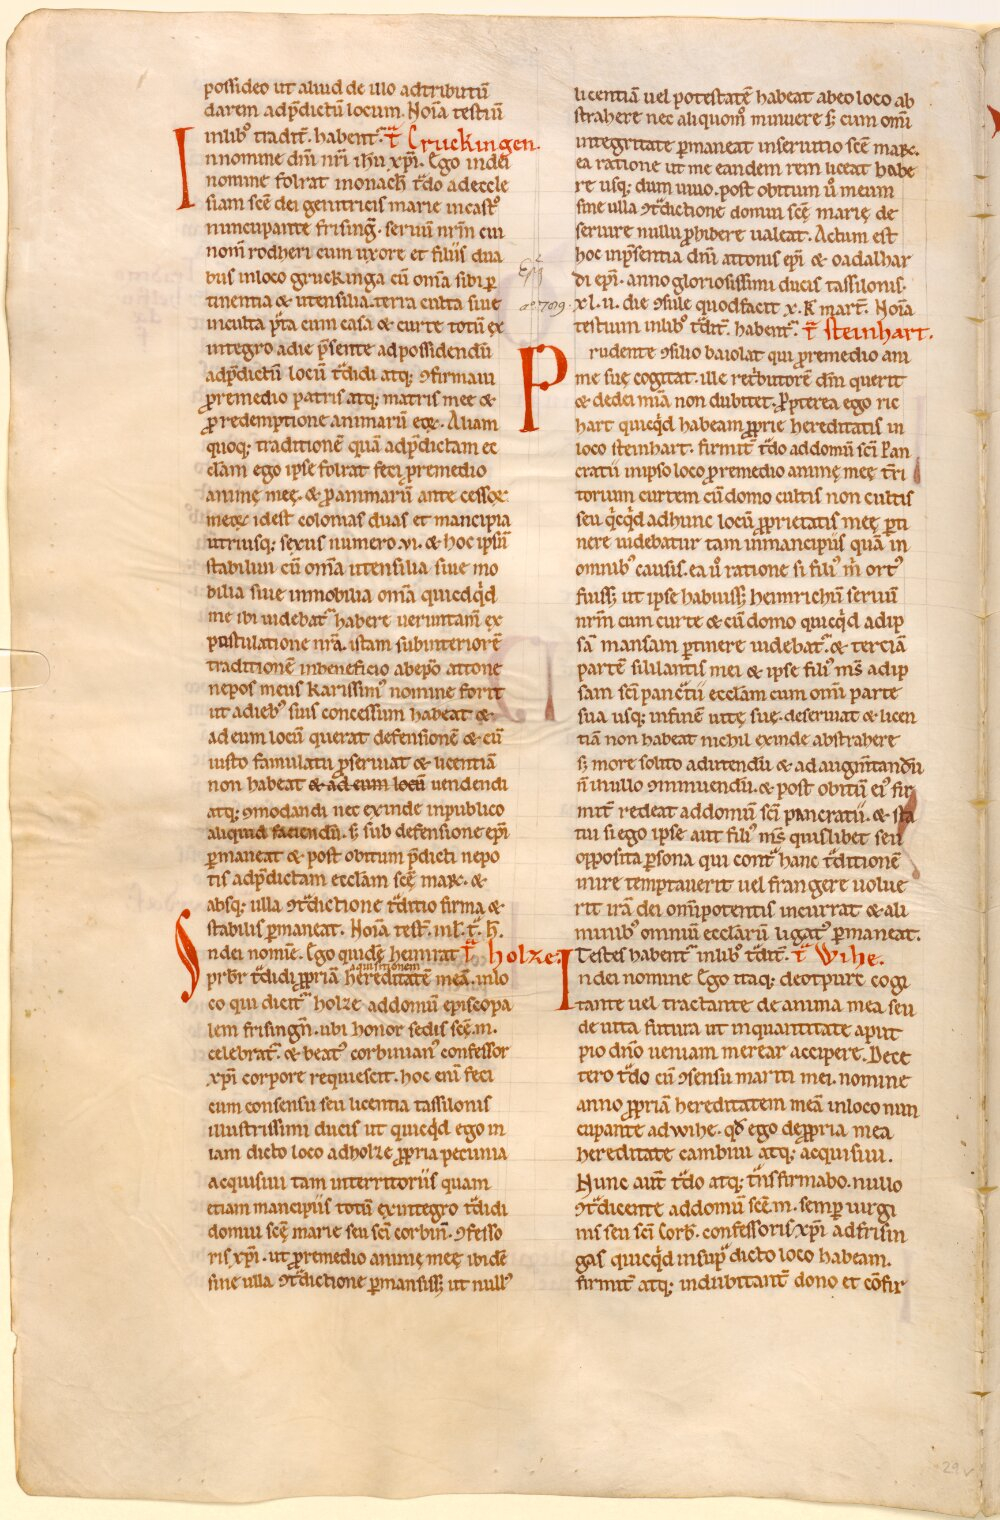 possideo ut aliud de illo adtributū
darem adp̄dictū locum. Noīa testiū
inlib᾿ tradit̄. habent᷑. t᷑ Cruckingen.
In nomine dn̄i nr̄i ihū xp̄i. Ego indei
nomine folrat monach᾿ t᷑do adeccle
siam scē dei genitricis marie incast᾿
nuncupante frisinḡ. seruū nr̄m cui
nom̄ rodheri cum uxore et filiis dua
bus inloco gruckinga cū om̄a sibi ꝑ
tinentia & utensilia. terra culta siue
inculta p̄ta cum casa & curte totū ex
integro adie p̄sente ad possidendū
adp̄dictū locū t᷑didi atq; ꝯfirmaui
ꝓremedio patris atq; matris mee &
ꝓ redemptione animarū eoꝝ. Aliam
quoq; traditionē quā adp̄dictam ec
clam ego ipse folrat feci ꝓremedio
animę meę. & ꝓanimarū ante cessoꝝ
meoꝝ idest colonias duas et mancipia
utriusq; sexus numero .vi. & hoc ipsū
stabilini cū om̄a uttensilia siue mo
bilia siue inmobilia om̄a quicdq̇d
me ibi uidebat᷑ habere ueruntam̄ ex
postulatione nr̄a. istam subinteriorē
traditionē inbeneficio abep̄o attone
nepos meus karissim᾿ nomine forit
ut adieb᾿ suis concessum habeat &
ad eum locū querat defensionē & cū
iusto famulatu ꝓseruiat & licentiā
non habeat & ad eum locū uendendi
atq; ꝯmodandi nec exinde inpublico
aliquid faciendū. s᷑ sub defensione ep̄i
ꝑmaneat & post obitum p̄dicti nepo
tis adp̄dictam ecclām scē marꝫ. &
absq; ulla ꝯt᷑dictione t᷑ditio firma &
stabilis ꝑmaneat. Noīa test̄. inl̄. t᷑. h̄.
In dei nomīe. Ego quidē heimrat t᷑ holze.
aquisitionem
pr̄br t᷑didi ꝓpriā hereditatē meā. inlo
co qui dicit᷑ holze addomū episcopa
lem frisingn̄. ubi honor sedis scē .m.
celebrat᷑. & beat᾿ corbinian᾿ confessor
xp̄i corpore requiescit. hoc enī feci
cum consensu seu licentia tassilonis
illustrissimi ducis ut quicq̇d ego in
iam dicto loco adholze ꝓpria pecunia
acquisiui tam interritoriis quam
etiam mancipiis totū exintegro t᷑didi
domui scē marie seu scī corbin̄. ꝯfesso
ris xp̄i. ut ꝓremedio animę meę ibidē
sine ulla ꝯt᷑dictione ꝑmansiss; ut null᾿
licentiā uel potestatē habeat abeo loco ab
strahere nec aliquom᾿ minuere s᷑ cum om̄i
integritate ꝑmaneat inseruitio scē marꝫ.
ea ratione ut me eandem rem liceat habe
re usq; dum uiuo. post obitum u᾿ meum
sine ulla ꝯt᷑dictione domui scē marię de
seruire nullu ꝓhibere ualeat. Actum est
hoc inp̄sentia dn̄i attonis ep̄i & oadalhar
di ep̄i. anno gloriosissimi ducis tassilonis.
xl. ii. die ꝯsule quodfacit x. k̄ mart̄. Noīa
testium inlib᾿ t᷑dit̄. habent᷑. t᷑ steinhart.
Prudente ꝯsilio baiolat qui ꝓremedio ani
me suę cogitat. ille ret᷑butorē dn̄m querit
& dedei mīa non dubitet. ꝓpterea ego ric
hart quicq̇d habeam ꝓprie hereditatis in
loco steinhart. firmit̄ t᷑do addomū scī pan
cratii inipso loco ꝓremedio animę meę t᷑ri
torium curtem cū domo cultis non cultis
seu q̇cq̇d adhunc locū ꝓprietatis meę ꝑti
nere uidebatur tam inmancipiis quā in
omnib᾿ causis. ea u᾿ ratione si fili᾿ m̄ ort᾿
fuiss; ut ipse habuiss; heimrichū seruū
nr̄m cum curte & cū domo quicq̇d adip
sā mansam ꝑtinere uidebat᷑. & terciā
partē sililantis mei & ipse fili᾿ ms̄ adip
sam scī panc᷑tii ecclām cum om̄i parte
sua usq; infinē uitę suę. deseruiat & licen
tiā non habeat nichil exinde abstrahere
s᷑ more solito adutendū & ad augm̄tandū
n̄ innullo ꝯminuendū. & post obitū ei᾿ fir
mit̄ redeat addomū scī pancratii. & sta
tui si ego ipse aut fili᾿ ms̄ quislibet seu
opposita ꝑsona qui cont᷑ hanc t᷑ditionē
inire temptauerit uel frangere uolue
rit irā dei om̄ipotentis incurrat & ali
minib᾿ omniū ecclārū ligat᾿ ꝑmaneat.
Testes habent᷑ inlib᾿ t᷑dit̄. t᷑ Wihe.
In dei nomine Ego itaq; deotpure cogi
tante uel tractante de anima mea seu
de uita futura ut inquantitate aput
pio dn̄o ueniam merear accipere. Dece
tero t᷑do cū ꝯsensu mariti mei. nomine
anno ꝓpriā hereditatem meā inloco nun
cupante adwihe. qd̄ ego deꝓpria mea
hereditate cambiui atq; acquisiui.
Nunc aut̄ t᷑do atq; t᷑nsfirmabo. nullo
ꝯt᷑dicente addomū scē .m. semꝑ uirgi
nis seu scī corb̄. confessoris xp̄i adfrisin
gas quicq̇d insup᷑dicto loco habeam.
firmit̄ atq; indubitant̄ dono et cōfir
ao 7019.
29v